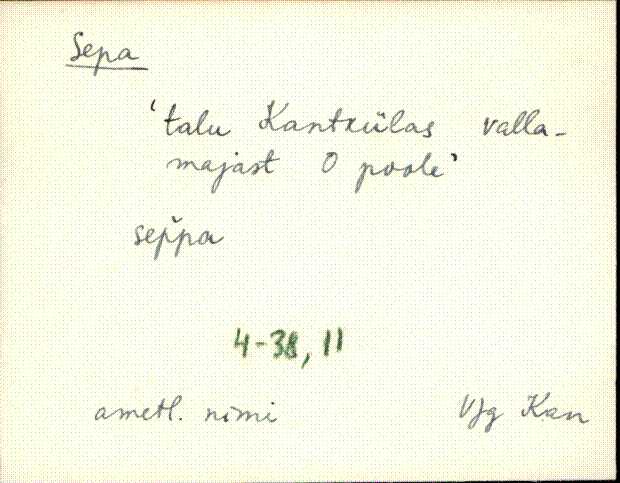 Sepa
'talu Kantkülas valla-
majast O poole'
sep̆pa
4-38, 11
ametl. nimi VJg Kan